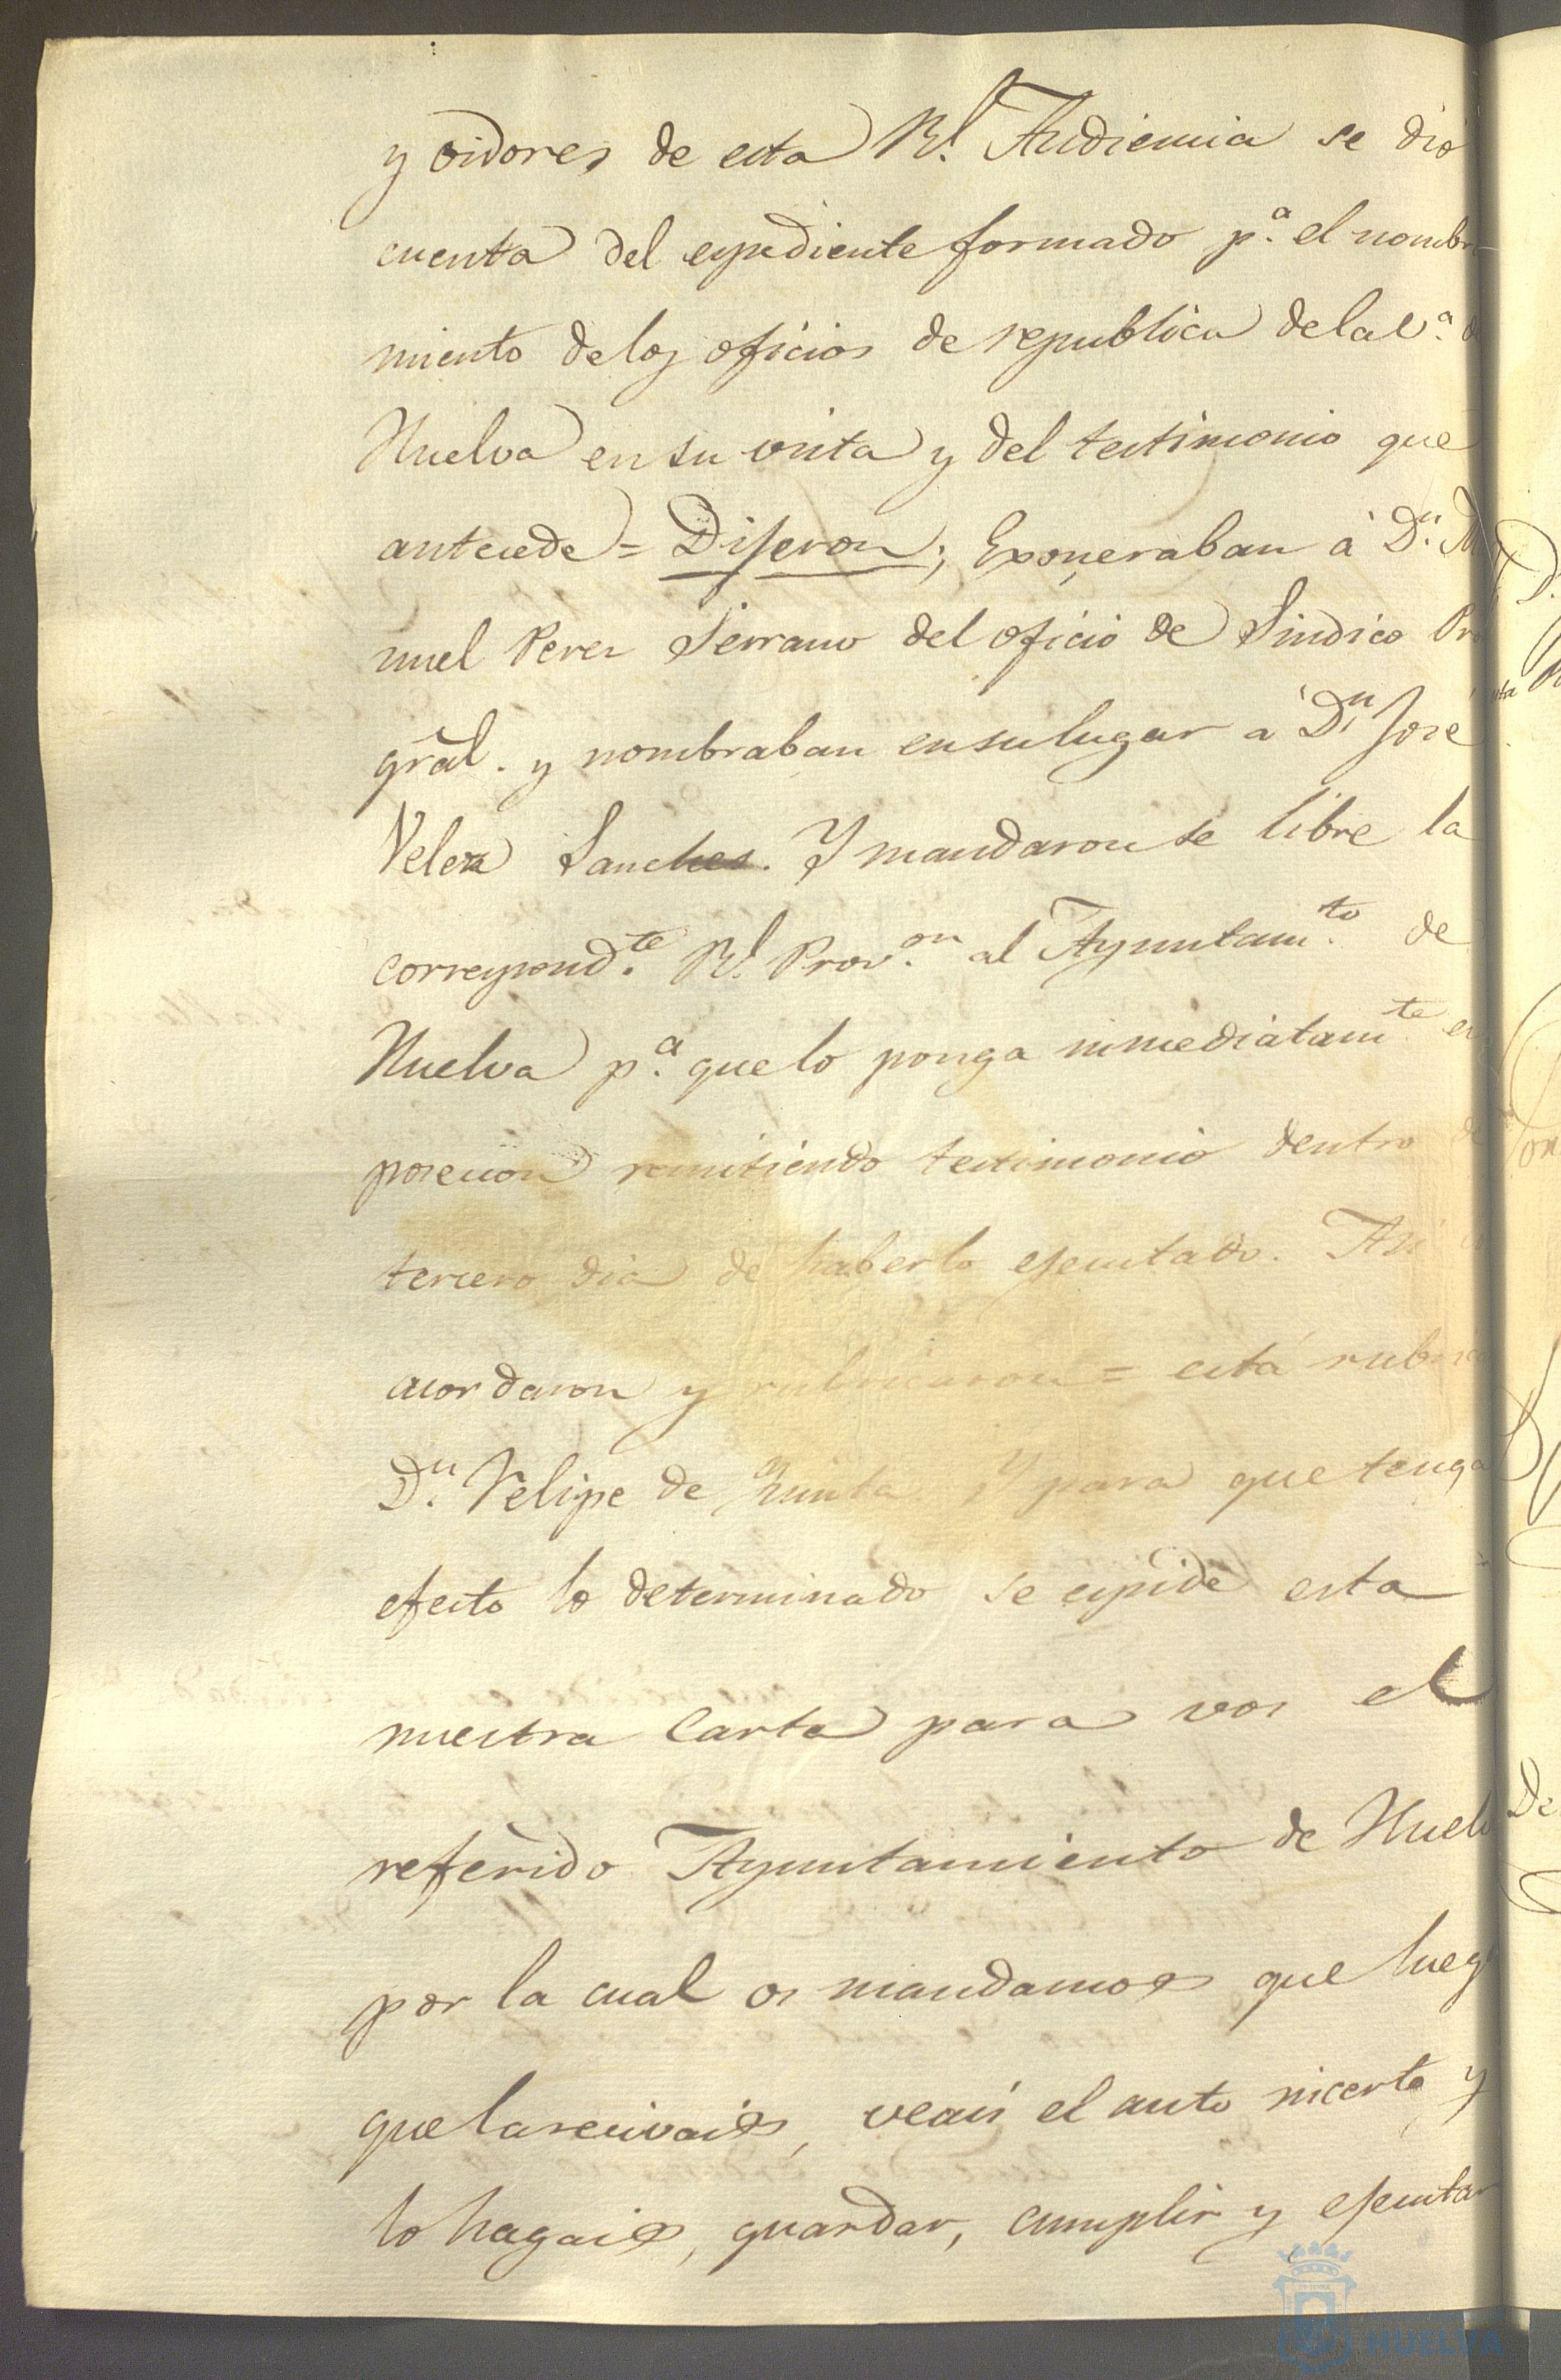 y oidores de esta Rl. Audiencia se dió
cuenta del espediente formado p.a el nombra
miento delos oficios de republica dela v.a d
Huelva en su vista y del testimonio que
antecede = Dijeron; Exoneraban á D.n M
nuel Perez Serrano del oficio de Sindico Pro
grãl. y nombraban en su lugar a D.n José
Velez Sanches. Y mandaron se libre la
correspond.te Rl. Prov.on al Ayuntam.to de
Huelva p.a que lo ponga inmediatam.te en
posecion remitiendo testimonio dentro de
tercero dia de haberlo ejecutado. Asi
acordaron y rubricaron = está rubric
D.n Felipe de Quinta Y para que tenga
efecto lo determinado se espide esta
nuestra Carta para vos el
referido Ayuntamiento de Huelv
por la cual os mandamos que lueg
que la recivais, veais el auto incerto y
lo hagais, guardar, cumplir y ejecutar
HUELVA